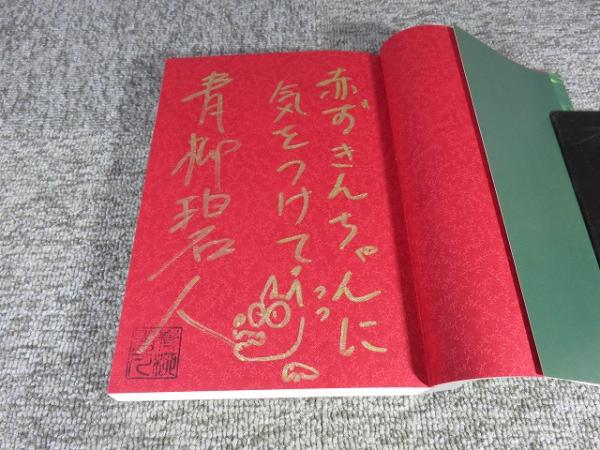 赤ずきんちゃんに
気をつけて
青柳碧人